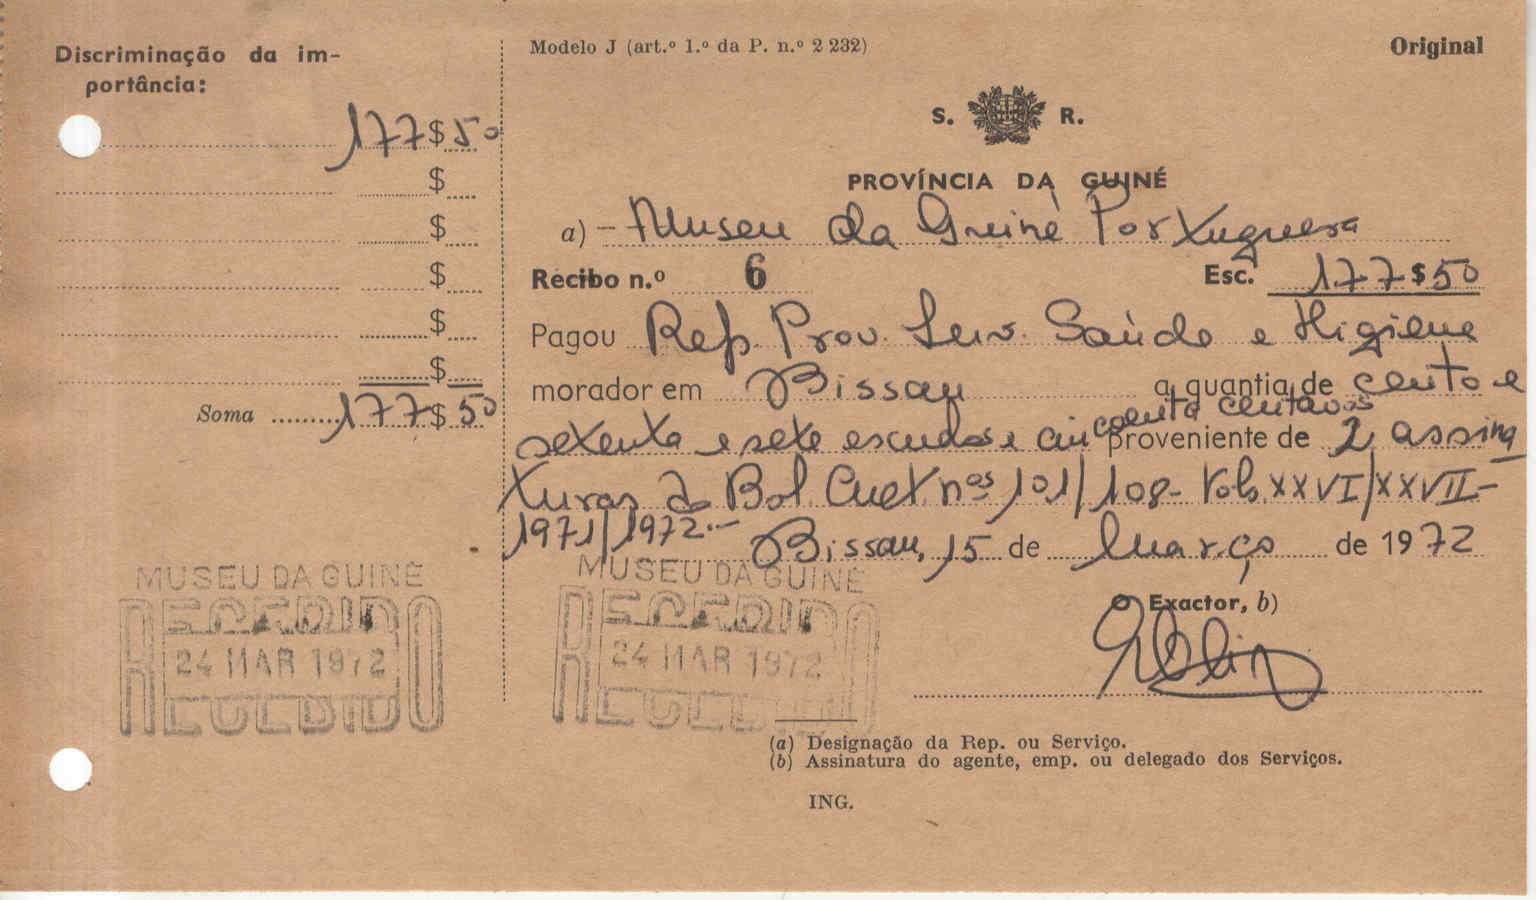 Discriminação da im-
portância:
177$50
$
$
$
$
$
Soma ........ 177$50
Modelo J (art.º 1.º da P. n.º 2 232)
Original
S. R.
PROVÍNCIA DA GUINÉ
a) - Museu da Guiné Portuguesa
Recibo n.º 6 Esc. 177$50
Pagou Rep. Prov. Serv. Saúde e Higiene
morador em Bissau a quantia de cento e
setenta e sete escudos e cincoenta centavos proveniente de 2 assina
turas do Bol. Cult. nos 101/108- Vols. XXVI/XXVII-
1971/1972.- Bissau, 15 de Março de 1972
O Exactor, b)
MUSEU DA GUINÉ
RECEBIDO
24 MAR 1972
RECEBIDO
MUSEU DA GUINÉ
RECEBIDO
24 MAR 1972
RECEBIDO
(a) Designação da Rep. ou Serviço.
(b) Assinatura do agente, emp. ou delegado dos Serviços.
ING.